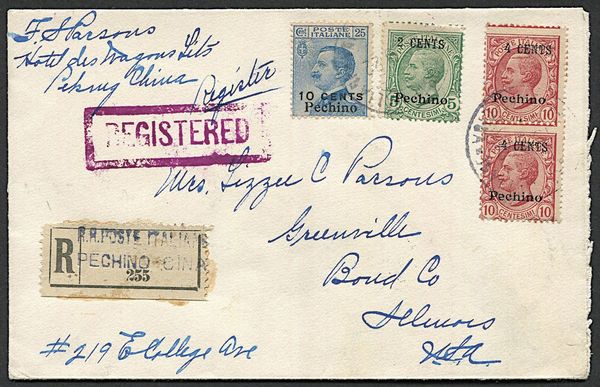 F S Parsons
Hotel des Wagons Lits
Peking China
Register
POSTE ITALIANE 25
10 CENTS
Pechino
2 CENTS
Pechino
5 5
CENTESIMI
4 CENTS
Pechino
10 10
CENTESIMI
4 CENTS
Pechino
10 10
CENTESIMI
REGISTERED
Mrs. Lizzie C Parsons
Greenville
Bond Co
Illinois
USA
R
R.R.POSTE ITALIA
PECHINO-CINA
255
#219 E College Ave